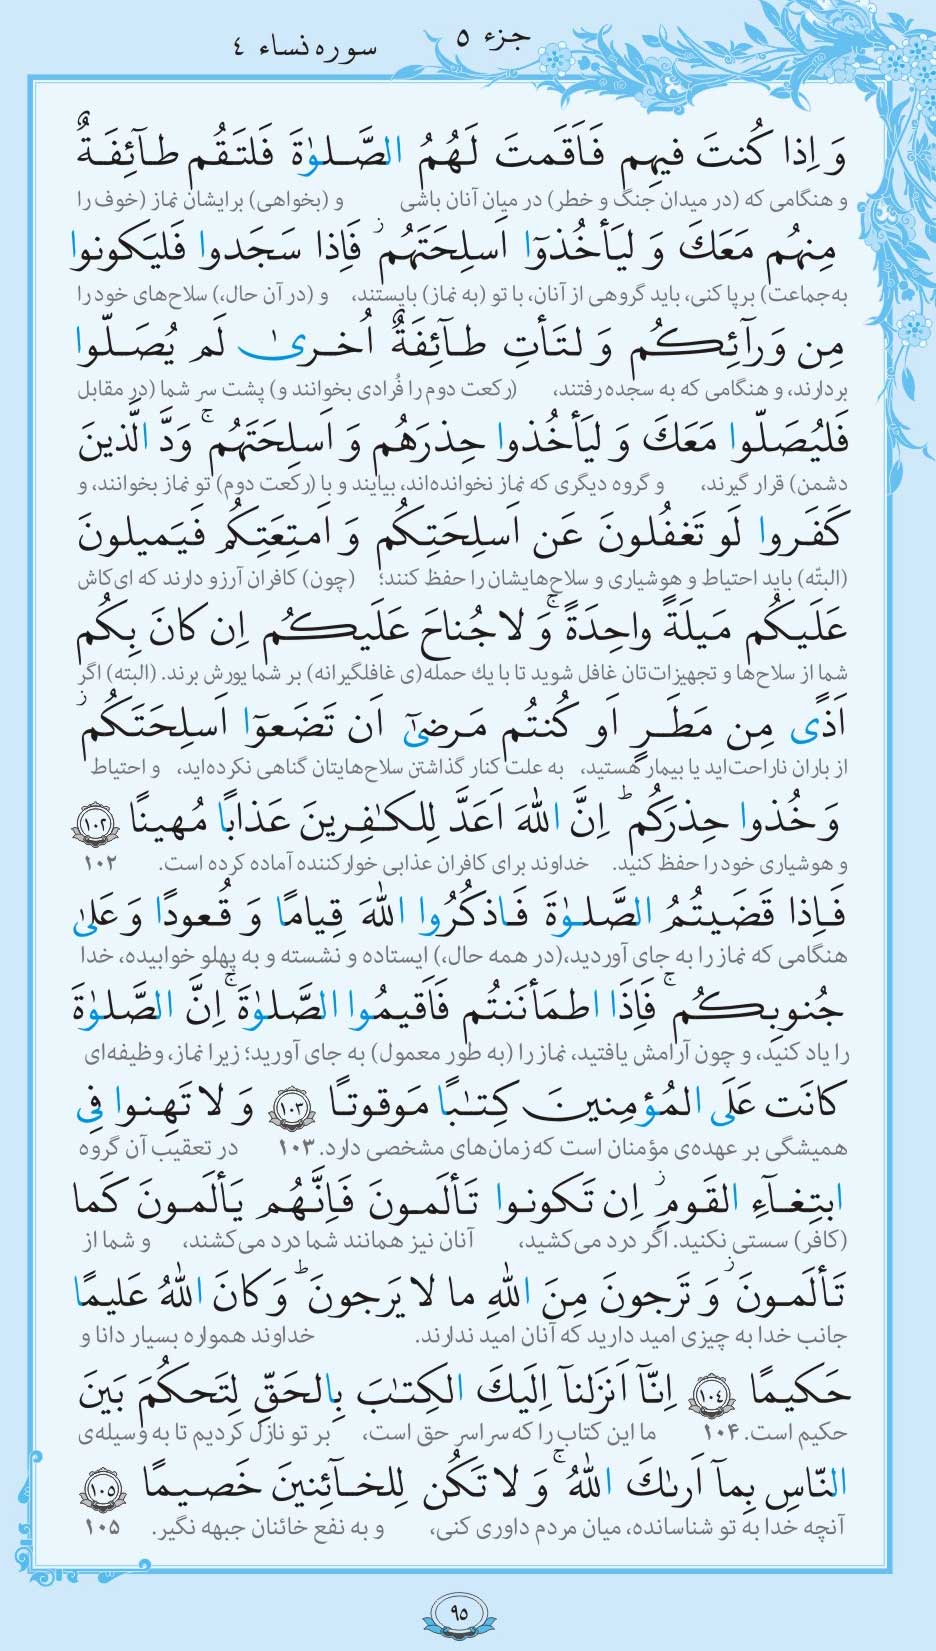 جزء ۵
سوره نساء ۴
وَ اِذا كُنتَ فيهِم فَاَقَمتَ لَهُمُ الصَّلوٰةَ فَلتَقُم طآئِفَةٌ
و هنگامی که (در میدان جنگ و خطر) در میان آنان باشی و (بخواهی) برایشان نماز (خوف را
مِنهُم مَعَكَ وَ ليَأخُذوٓا اَسلِحَتَهُم ۖ فَاِذا سَجَدوا فَليَكونوا
به‌جماعت) برپا کنی، باید گروهی از آنان، با تو (به نماز) بایستند، و (در آن حال،) سلاح‌های خود را
مِن وَرآئِكُم وَ لتَأتِ طآئِفَةٌ اُخرىٰ لَم يُصَلّوا
بردارند، و هنگامی که به سجده رفتند، (رکعت دوم را فُرادی بخوانند و) پشت سر شما (در مقابل
فَليُصَلّوا مَعَكَ وَ ليَأخُذوا حِذرَهُم وَ اَسلِحَتَهُم ۚ وَدَّ الَّذينَ
دشمن) قرار گیرند، و گروه دیگری که نماز نخوانده‌اند، بیایند و با (رکعت دوم) تو نماز بخوانند، و
كَفَروا لَو تَغفُلونَ عَن اَسلِحَتِكُم وَ اَمتِعَتِكُم فَيَميلونَ
(البتّه) باید احتیاط و هوشیاری و سلاح‌هایشان را حفظ کنند؛ (چون) کافران آرزو دارند که ای‌کاش
عَلَيكُم مَيلَةً واحِدَةً ۚ وَ لا جُناحَ عَلَيكُم اِن كانَ بِكُم
شما از سلاح‌ها و تجهیزات‌تان غافل شوید تا با یك حمله(ی غافلگیرانه) بر شما یورش برند. (البته) اگر
اَذًى مِن مَطَرٍ اَو كُنتُم مَرضىٰٓ اَن تَضَعوٓا اَسلِحَتَكُم ۖ
از باران ناراحت‌اید یا بیمار هستید، به علت کنار گذاشتن سلاح‌هایتان گناهی نکرده‌اید، و احتیاط
وَ خُذوا حِذرَكُم ۗ اِنَّ اللهَ اَعَدَّ لِلكٰفِرينَ عَذابًا مُهينًا ﴿۱۰۲﴾
و هوشیاری خود را حفظ کنید. خداوند برای کافران عذابی خوارکننده آماده کرده است. ۱۰۲
فَاِذا قَضَيتُمُ الصَّلوٰةَ فَاذكُرُوا اللهَ قِيامًا وَ قُعودًا وَ عَلىٰ
هنگامی که نماز را به جای آوردید،(در همه حال،) ایستاده و نشسته و به پهلو خوابیده، خدا
جُنوبِكُم ۚ فَاِذَا اطمَأنَنتُم فَاَقيمُوا الصَّلوٰةَ ۚ اِنَّ الصَّلوٰةَ
را یاد کنید، و چون آرامش یافتید، نماز را (به طور معمول) به جای آورید؛ زیرا نماز، وظیفه‌ای
كانَت عَلَى المُؤمِنينَ كِتٰبًا مَوقوتًا ﴿۱۰۳﴾ وَ لا تَهِنوا فِى
همیشگی بر عهده‌ی مؤمنان است که زمان‌های مشخصی دارد. ۱۰۳ در تعقیب آن گروه
ابتِغآءِ القَومِ ۖ اِن تَكونوا تَألَمونَ فَاِنَّهُم يَألَمونَ كَما
(کافر) سستی نکنید. اگر درد می‌کشید، آنان نیز همانند شما درد می‌کشند، و شما از
تَألَمونَ ۖ وَ تَرجونَ مِنَ اللهِ ما لا يَرجونَ ۗ وَ كانَ اللهُ عَليمًا
جانب خدا به چیزی امید دارید که آنان امید ندارند. خداوند همواره بسیار دانا و
حَكيمًا ﴿۱۰۴﴾ اِنّآ اَنزَلنآ اِلَيكَ الكِتٰبَ بِالحَقِّ لِتَحكُمَ بَينَ
حکیم است. ۱۰۴ ما این کتاب را که سراسر حق است، بر تو نازل کردیم تا به وسیله‌ی
النّاسِ بِمآ اَرىٰكَ اللهُ ۚ وَ لا تَكُن لِلخآئِنينَ خَصيمًا ﴿۱۰۵﴾
آنچه خدا به تو شناسانده، میان مردم داوری کنی، و به نفع خائنان جبهه نگیر. ۱۰۵
۹۵